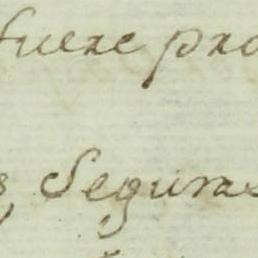 fuere pro
s, Seguras